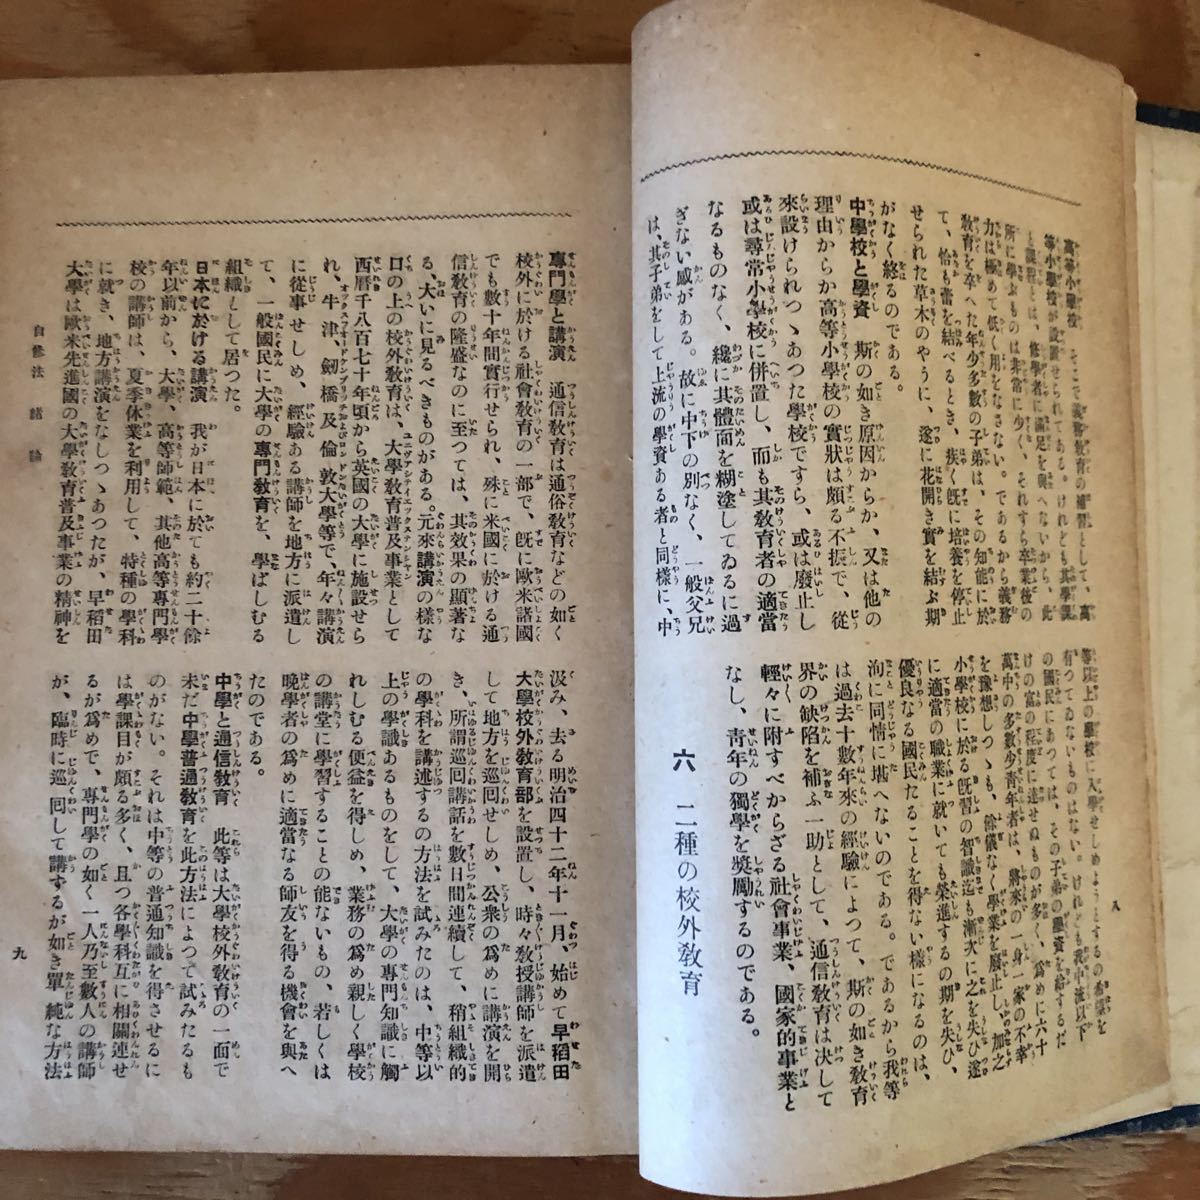 高等小學校 そこで義務教育の補習として、高
等小學校が設置せられてある。けれども其學課
と課程とは、修學者に滿足を與へないから、此
所に學ぶものは非常に少く、それすら卒業後の
力は極めて低く用をなさない。であるから義務
教育を卒へた年少多數の子弟は、その知能に於
て、恰も蕾を結べるとき、疾く既に培養を停止
せられた草木のやうに、遂に花開き實を結ぶ期
がなく終るのである。
中學校と學資 斯の如き原因からか、又は他の
理由からか高等小學校の實狀は頗る不振で、從
來設けられつゝあつた學校ですら、或は廢止し
或は尋常小學校に併置し、而も其敎育者の適當
なるものなく、纔に其體面を糊塗してゐるに過
ぎない感がある。故に中下の別なく、一般父兄
は、其子弟をして上流の學資ある者と同樣に、中
等以上の學校に入學せしめようとするの希望を
有つてゐないものはない。けれども我中流以下
の國民にあつては、その子弟の學資を給するだ
けの富の程度に達せぬものが多く、爲めに六十
萬中の多數少靑年者は、將來の一身一家の不幸
を豫想しつゝも、餘儀なく學業を廢止し、加之
小學校に於る既習の智識迄も漸次に之を失ひ遂
に適當の職業に就いても榮進するの期を失ひ、
優良なる國民たることを得ない樣になるのは、
洵に同情に堪へないのである。であるから我等
は過去十數年來の經驗によつて、斯の如き敎育
界の缺陷を補ふ一助として、通信敎育は決して
輕々に附すべからざる社會事業、國家的事業と
なし、靑年の獨學を奬勵するのである。
六 二種の校外敎育
八
專門學と講演 通信敎育は通俗敎育などの如く
校外に於ける社會敎育の一部で、既に歐米諸國
でも數十年間實行せられ、殊に米國に於ける通
信敎育の隆盛なのに至つては、其效果の顯著な
る、大いに見るべきものがある。元來講演の樣な
口の上の校外敎育は、大學敎育普及事業として
西曆千八百七十年頃から英國の大學に施設せら
れ、牛津、劍橋及倫敦大學等で、年々講演
に從事せしめ、經驗ある講師を地方に派遣し
て、一般國民に大學の專門敎育を、學ばしむる
組織として居つた。
日本に於ける講演 我が日本に於ても約二十餘
年以前から、大學、高等師範、其他高等專門學
校の講師は、夏季休業を利用して、特種の學科
に就き、地方講演をなしつゝあつたが、早稻田
大學は歐米先進國の大學敎育普及事業の精神を
汲み、去る明治四十二年十一月、始めて早稻田
大學校外敎育部を設置し、時々敎授講師を派遣
して地方を巡回せしめ、公衆の爲めに講演を開
き、所謂巡回講話を數日間連續して、稍組織的
の學科を講述するの方法を試みたのは、中等以
上の學識あるものをして、大學の專門知識に觸
れしむる便益を得しめ、業務の爲め親しく學校
の講堂に學習することの能ないもの、若しくは
晩學者の爲めに適當なる師友を得る機會を與へ
たのである。
中學と通信敎育 此等は大學校外敎育の一面で
未だ中學普通敎育を此方法によつて試みたるも
のがない。それは中等の普通知識を得さセるに
は學課目が頗る多く、且つ各學科互に相關連せ
るが爲めで、專門學の如く一人乃至數人の講師
が、臨時に巡回して講するが如き單純な方法
自修法 緒論
九